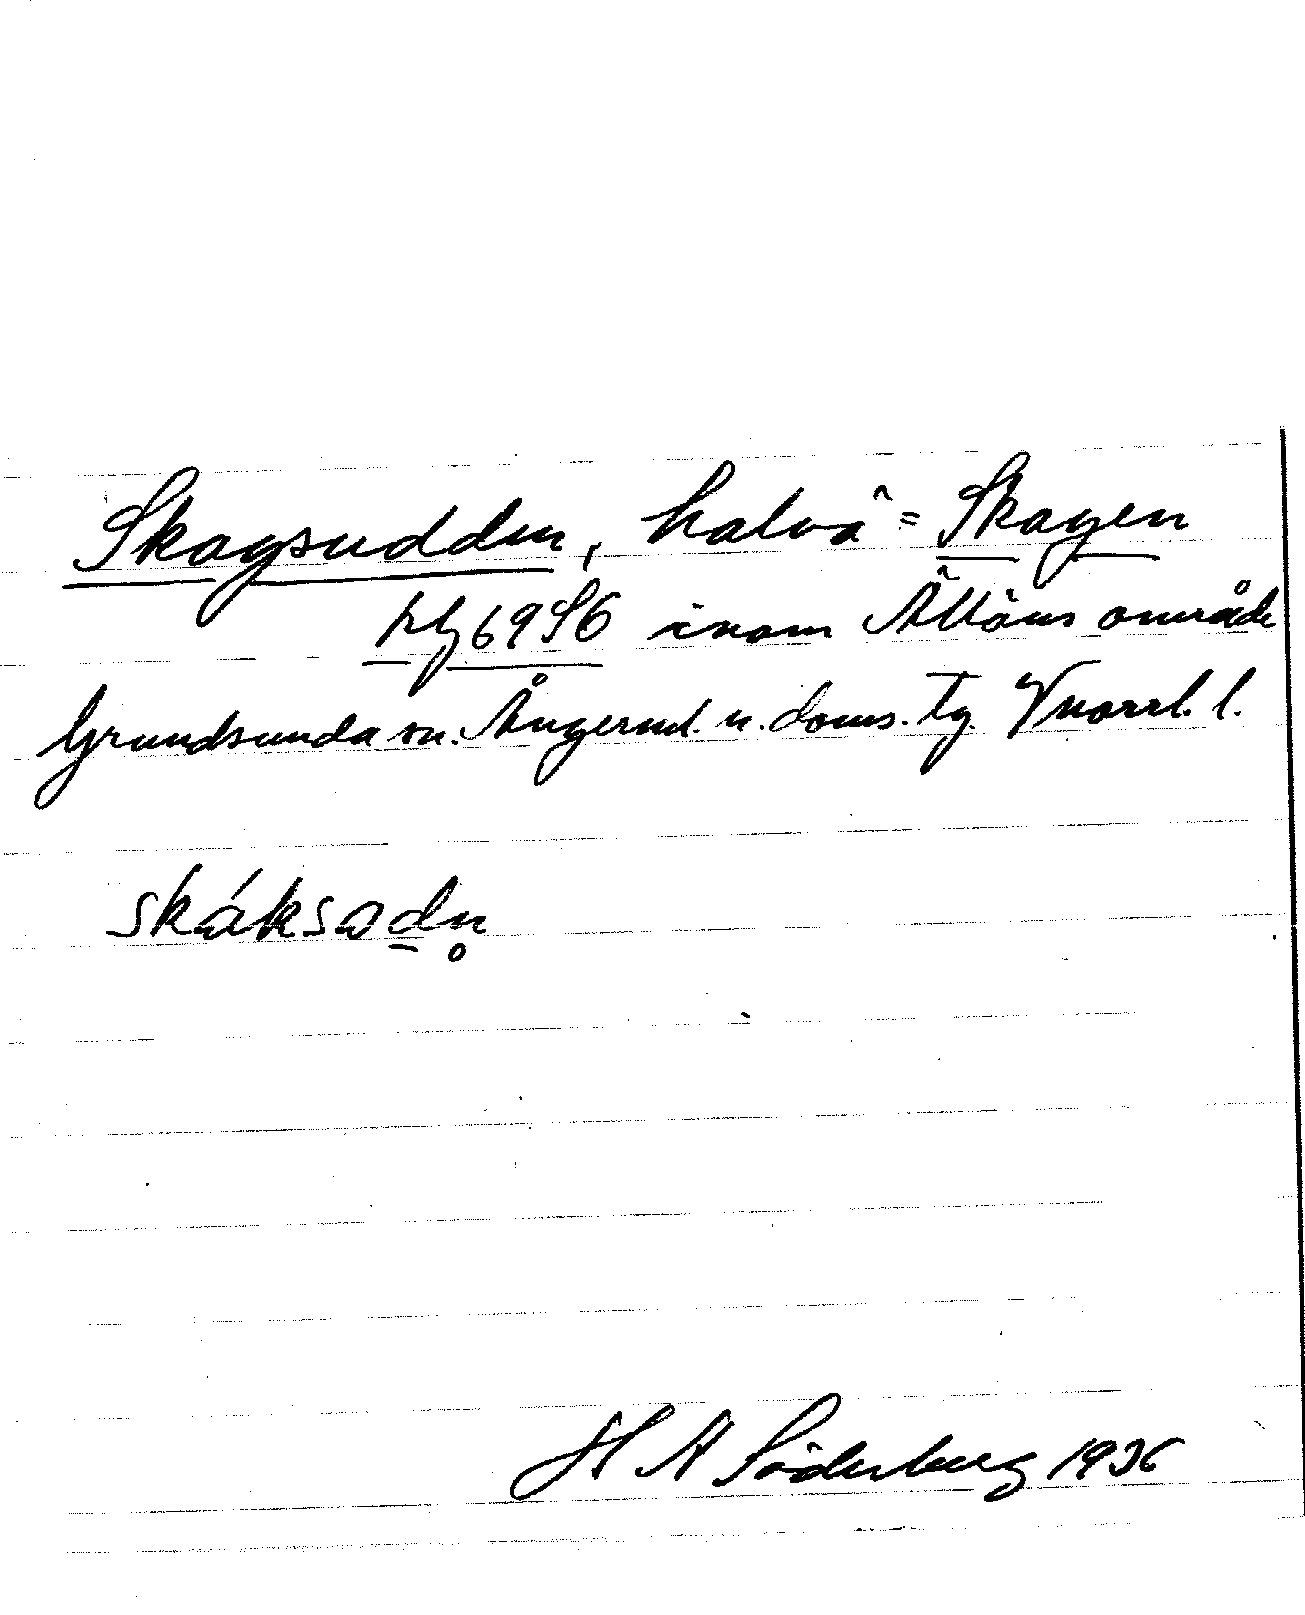 Skagsudden, halvö = Skagen
6996 inom Ällöns område
Grundsunda sn. Ångerml. n. doms. tg. Vnorrl. l.
skáksɷdn̥
H A Söderberg 1936